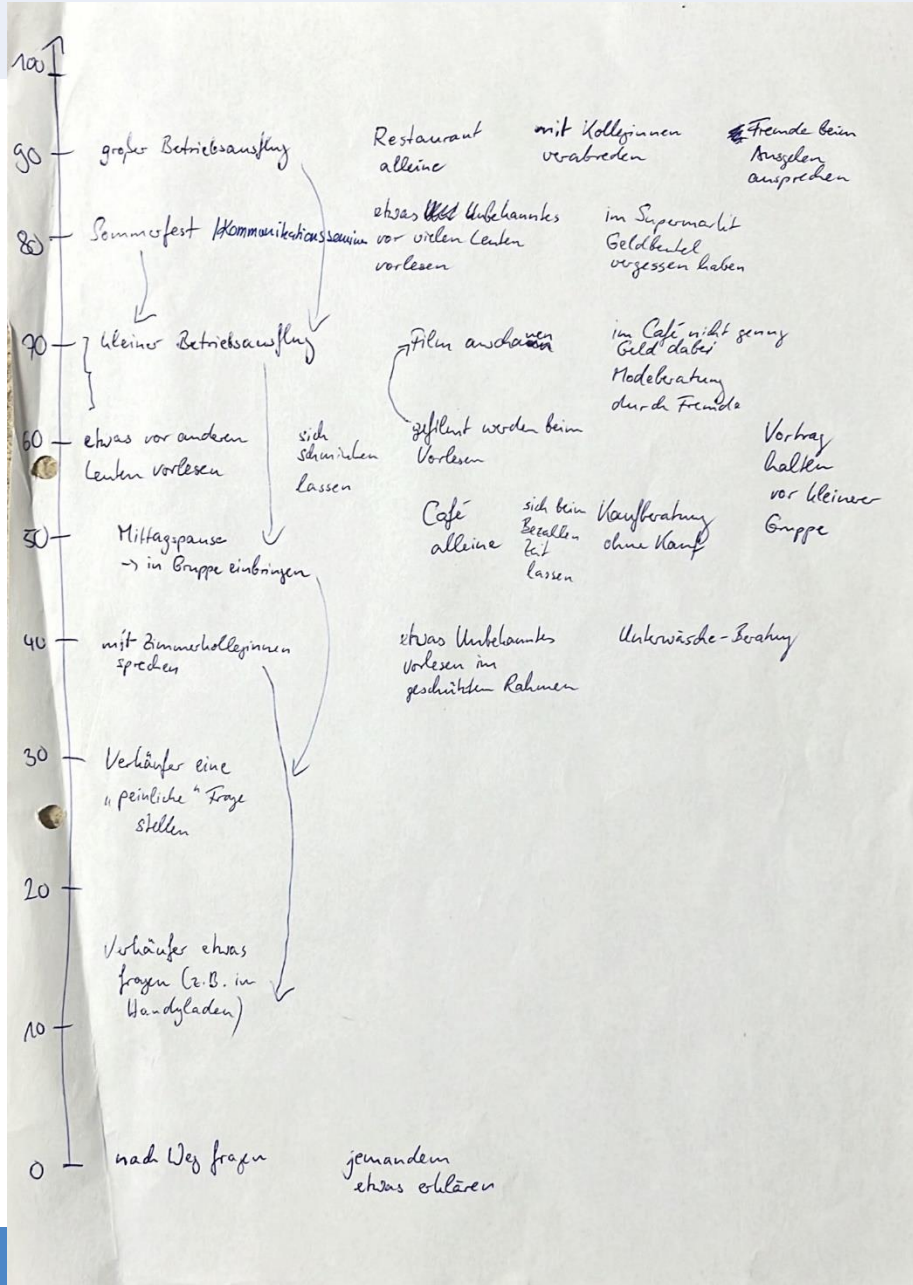 100
90
großer Betriebsausflug
Restaurant
alleine
mit Kolleginnen
verabreden
Fremde beim
Ausgehen
ansprechen
80
Sommerfest /Kommunikationsseminar
etwas Unbekanntes
vor vielen Leuten
vorlesen
im Supermarkt
Geldbeutel
vergessen haben
70
kleiner Betriebsausflug
Film anschauen
im Café nicht genug
Geld dabei
Modeberatung
durch Fremde
60
etwas vor anderen
Leuten vorlesen
sich
schminken
lassen
gefilmt werden beim
Vorlesen
Vortrag
halten
vor kleinerer
Gruppe
50
Mittagspause
-> in Gruppe einbringen
Café
alleine
sich beim
Bezahlen
Zeit
lassen
Kaufberatung
ohne Kauf
40
mit Zimmerkolleginnen
sprechen
etwas Unbekanntes
vorlesen im
geschützten Rahmen
Unterwäsche-Beratung
30
Verkäufer eine
"peinliche" Frage
stellen
20
Verkäufer etwas
fragen (z.B. im
Handyladen)
10
0
nach Weg fragen
jemandem
etwas erklären